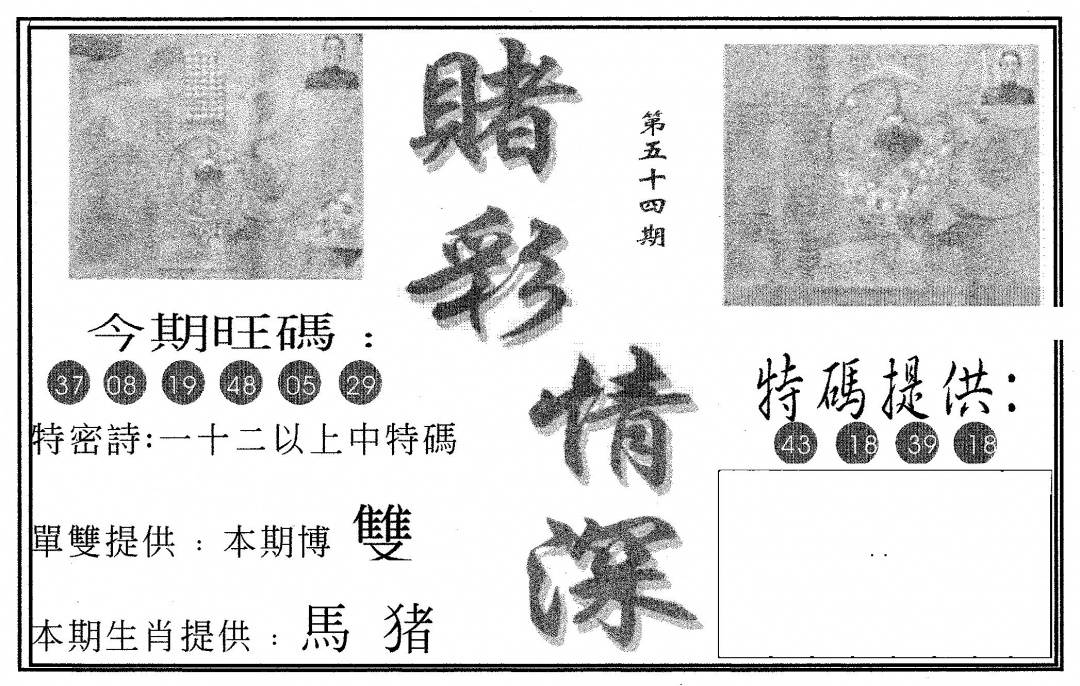 賭彩情深
第五十四期
今期旺碼：
37 08 19 48 05 29
特密詩:一十二以上中特碼
單雙提供：本期博 雙
本期生肖提供：馬 猪
特碼提供：
43 18 39 18